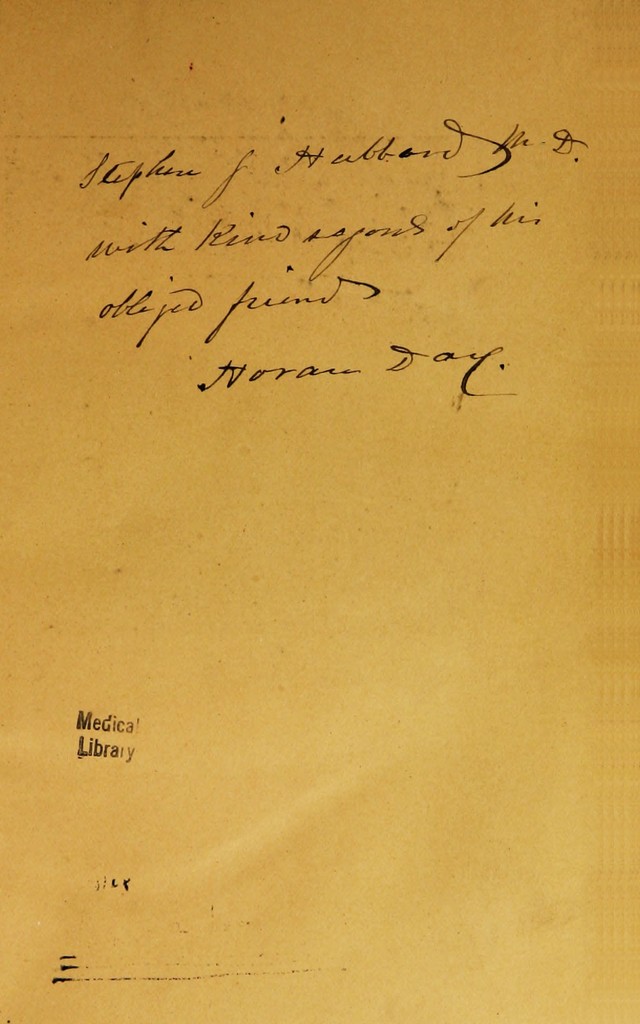 Stephen J Hubbard M.D.
with Kind regards of his
obliged friend
Horace Day.
Medical
Library